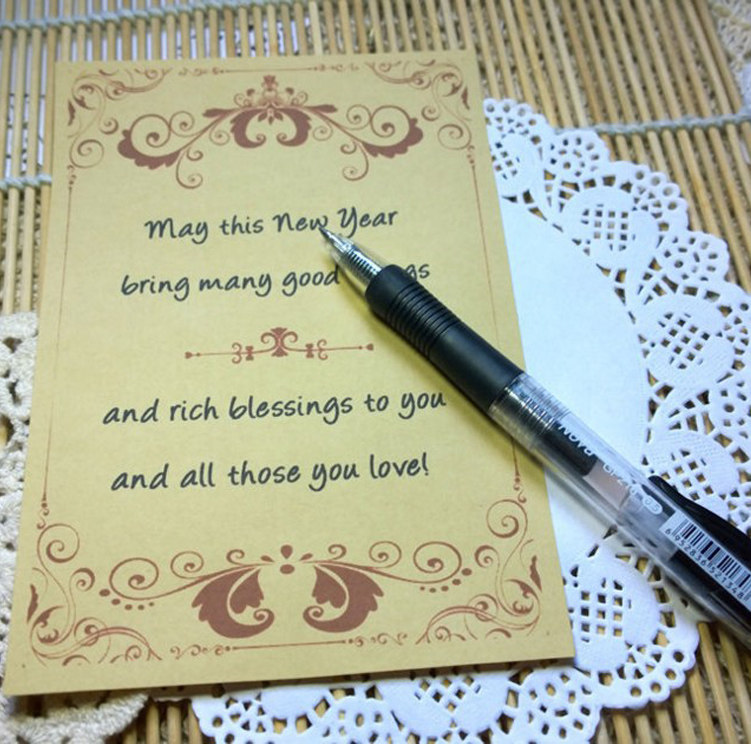 May this New Year
bring many good gs
and rich blessings to you
and all those you love!